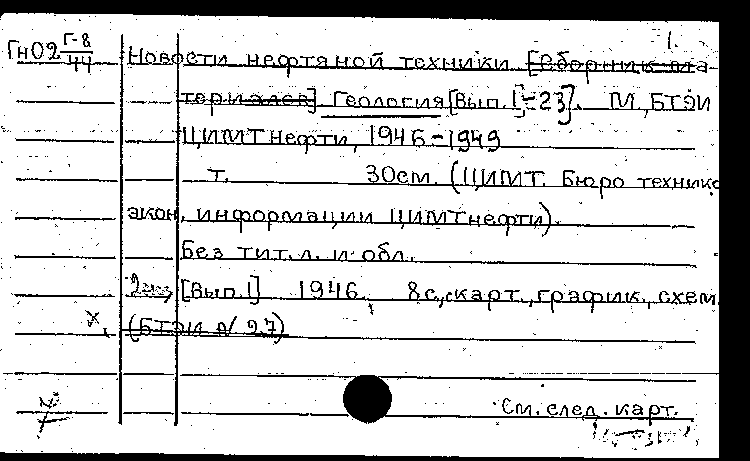 1.
Гн02 Г-8/44 Новости нефтяной техники [Сборник ма-
териалов]. Геология [Вып. 1]-23]. М., БТЭИ
ЦИМТнефти, 1946-1949
т. 30см. (ЦИМТ. Бюро технико
экон. информации ЦИМТнефти).
Без тит. л. и обл.
[Вып. 1] 1946. 8с., скарт., график., схем.
х. (БТЭИ № 27)
См. след. карт.